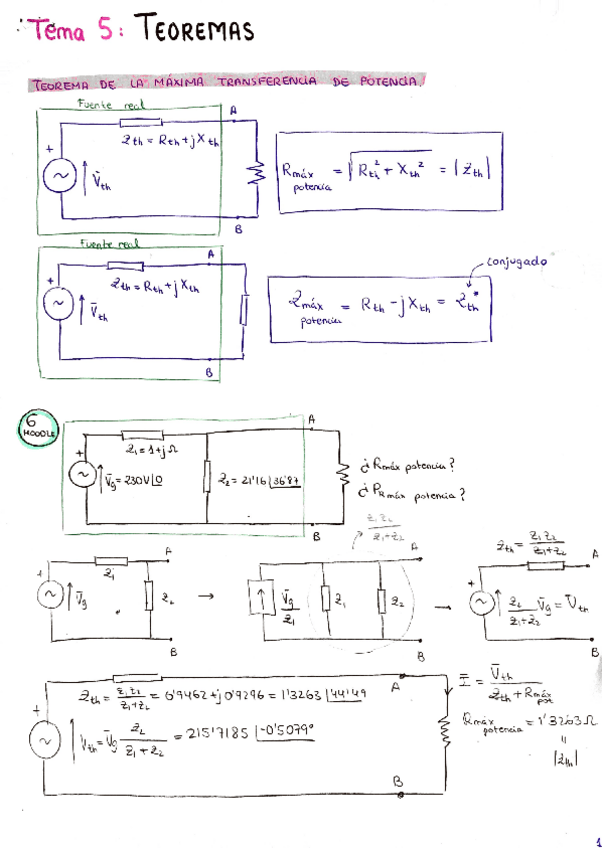 Tema 5: TEOREMAS
TEOREMA DE LA MÁXIMA TRANSFERENCIA DE POTENCIA.
Fuente real
A
Zth = Rth + jXth
+
V̄th
Rmáx potencia = √(Rth² + Xth²) = |Zth|
B
Fuente real
A
conjugado
Zth = Rth + jXth
+
V̄th
Zmáx potencia = Rth - jXth = Zth*
B
6
MOODLE
A
Z1 = 1+j Ω
+
V̄g = 230V|0
Z2 = 21'16 |36'87
¿Rmáx potencia?
¿PRmáx potencia?
B
Z1Z2/Z1+Z2
A
Z1
+
V̄g
Z2
B
→
A
V̄g/Z1
Z1
Z2
B
→
Zth = Z1Z2/Z1+Z2
A
+
Z2/Z1+Z2 V̄g = V̄th
B
Zth = Z1Z2/Z1+Z2 = 0'9462 + j0'9296 = 1'3263 |44'49
A
Ī = V̄th/Zth + Rmáx pot
+
V̄th = V̄g Z2/Z1+Z2 = 215'7185 |-0'5079°
Rmáx potencia = 1'3263 Ω
=
|Zth|
B
1